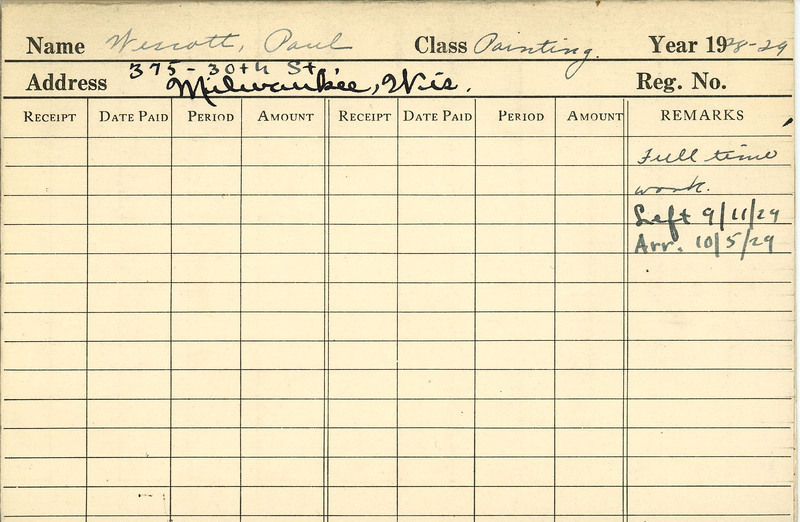 Name Wescott, Paul Class Painting. Year 1928-29
Address 375-30th St,
Milwaukee, Wis. Reg. No.
RECEIPT DATE PAID PERIOD AMOUNT RECEIPT DATE PAID PERIOD AMOUNT REMARKS
Full time
work.
Left 9/11/29
Arr. 10/5/29